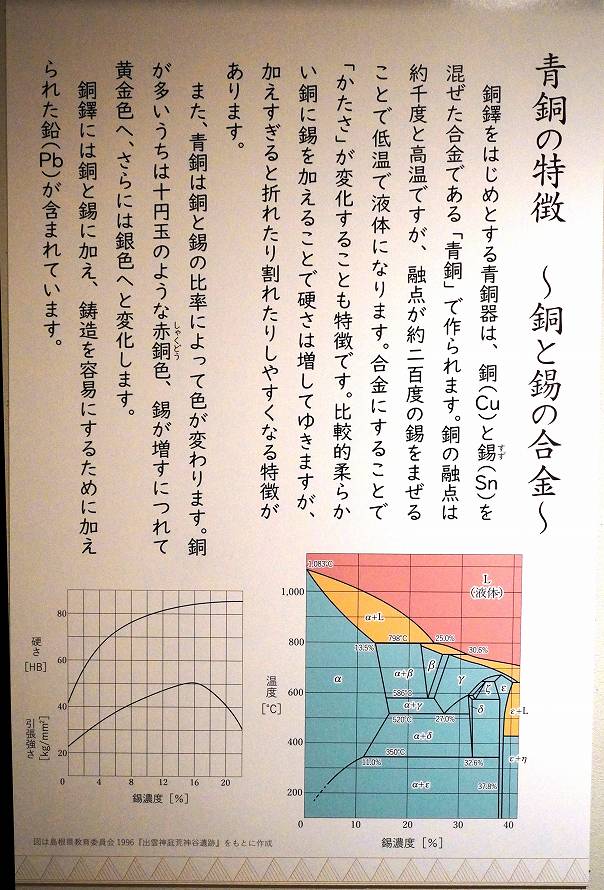 青銅の特徴　～銅と錫の合金～
銅鐸をはじめとする青銅器は、銅(Cu)と錫(Sn)を
すず
混ぜた合金である「青銅」で作られます。銅の融点は
約千度と高温ですが、融点が約二百度の錫をまぜる
ことで低温で液体になります。合金にすることで
「かたさ」が変化することも特徴です。比較的柔らか
い銅に錫を加えることで硬さは増してゆきますが、
加えすぎると折れたり割れたりしやすくなる特徴が
あります。
また、青銅は銅と錫の比率によって色が変わります。銅
が多いうちは十円玉のような赤銅色、錫が増すにつれて
しゃくどう
黄金色へ、さらには銀色へと変化します。
銅鐸には銅と錫に加え、鋳造を容易にするために加え
られた鉛(Pb)が含まれています。
硬さ
[HB]
引張強さ
[kg/mm²]
80
60
40
20
0 4 8 12 16 20
錫濃度［%］
温度
[℃]
1,000
800
600
400
200
1,083℃
L
(液体)
α+L
798℃
25.0%
13.5%
30.6%
α
α+β
β
γ
ζ
ε
586℃
α+γ
δ
ε+L
520℃
27.0%
α+δ
350℃
11.0%
32.6%
ε+η
α+ε
37.8%
0 10 20 30 40
錫濃度［%］
図は島根県教育委員会 1996『出雲神庭荒神谷遺跡』をもとに作成